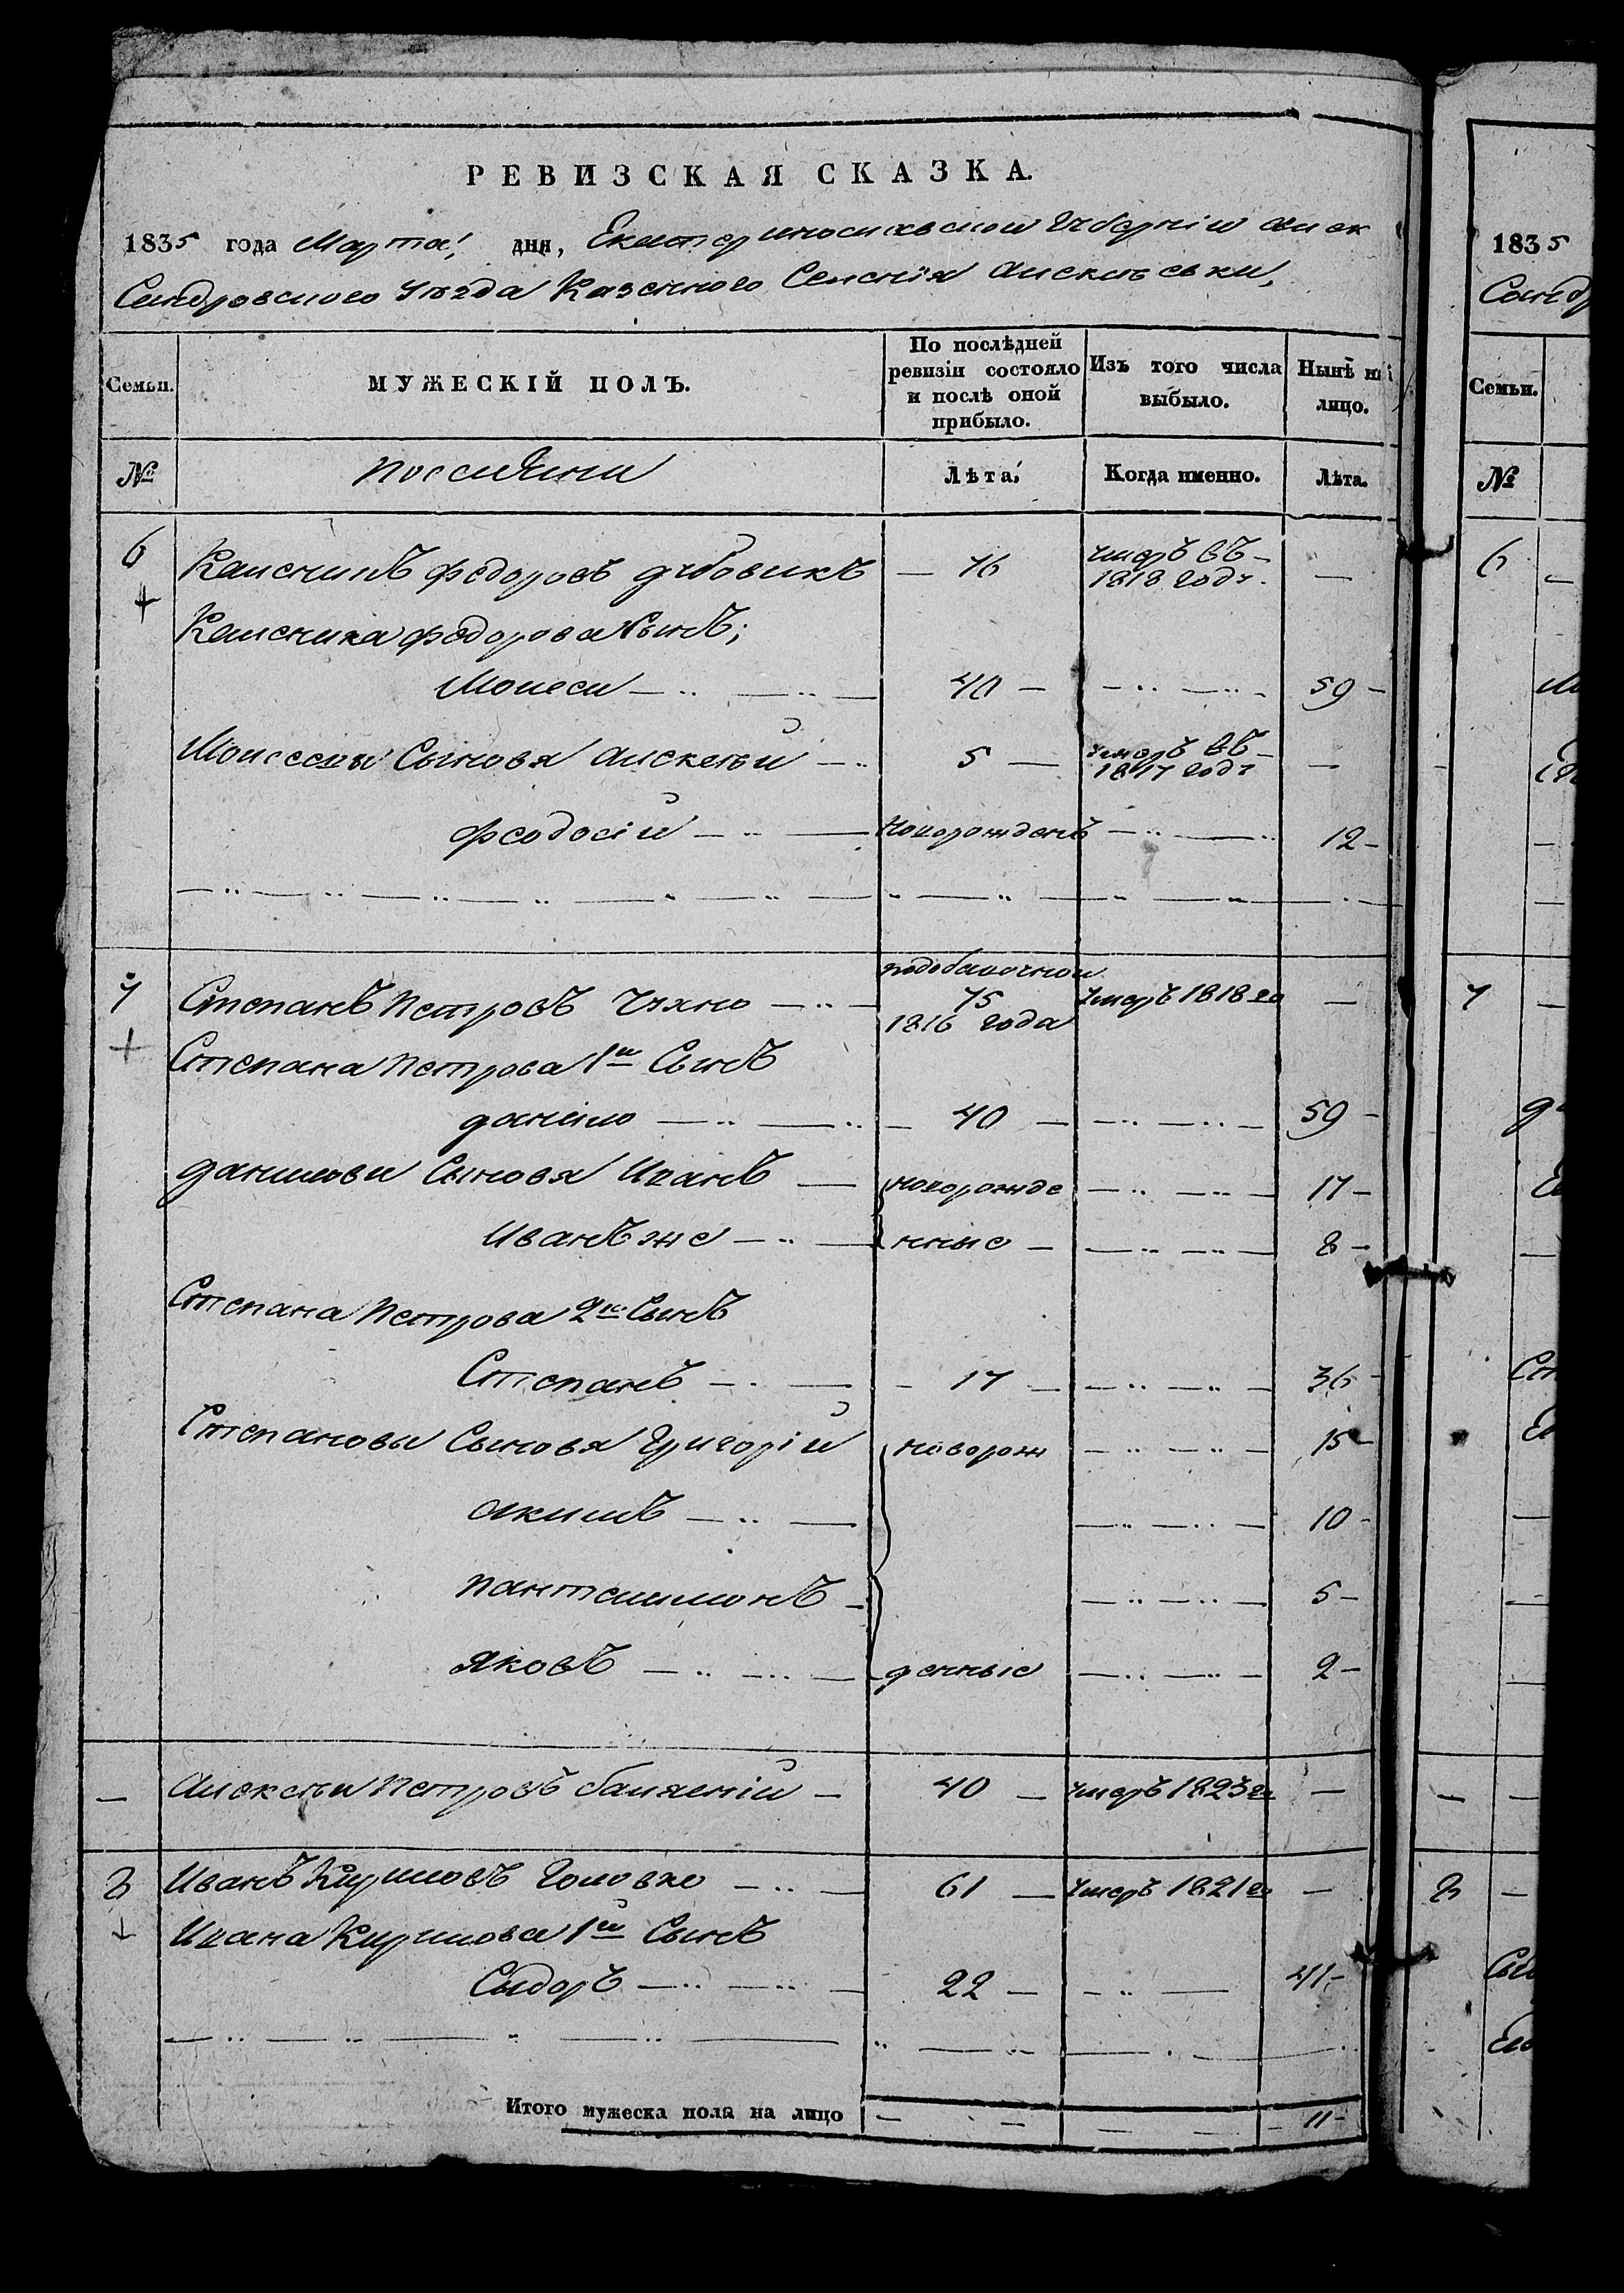 РЕВИЗСКАЯ СКАЗКА.
1835 года Марта дня, Екатеринославской Губерніи Алек
Сандровского Уѣзда Казенного Селенія Алексѣевки,
Семьи. МУЖЕСКІЙ ПОЛЪ. По послѣдней ревизіи состояло и послѣ оной прибыло. Изъ того числа выбыло. Нынѣ на лицо.
№ Лѣта. Когда именно. Лѣта.
6 Калениkъ Федоровъ дубовикъ — 76 умеръ въ 1818 году. —
Каленика Федорова Сынъ;
Моисей 40 — 59 —
Моисеевы Сыновя Алексѣй 5 — умеръ въ 1817 году —
Феодосій новорожденъ 12 —
7 Степанъ Петровъ подобавочной 75 1816 года умеръ 1818 го —
Степана Петрова 1й Сынъ
данило — 40 — 59 —
даниловы Сыновя Иванъ — новорожде 17 —
Иванъ же нные — 8 —
Степана Петрова 2й Сынъ
Степанъ — 17 — 36 -
Степановы Сыновя Григорій новорож 15 —
Акимъ 10 -
Пантелимонъ 5 —
Яковъ денные 2 —
— Алексѣй Петровъ 40 — умеръ 1823 го —
8 Иванъ Кириловъ Головко 61 — умеръ 1821 го —
Ивана Кирилова 1й Сынъ
Сыдоръ 22 — 41 -
Итого мужеска пола на лицо — — 11 -
1835
Санд
Семьи.
№
6
7
8